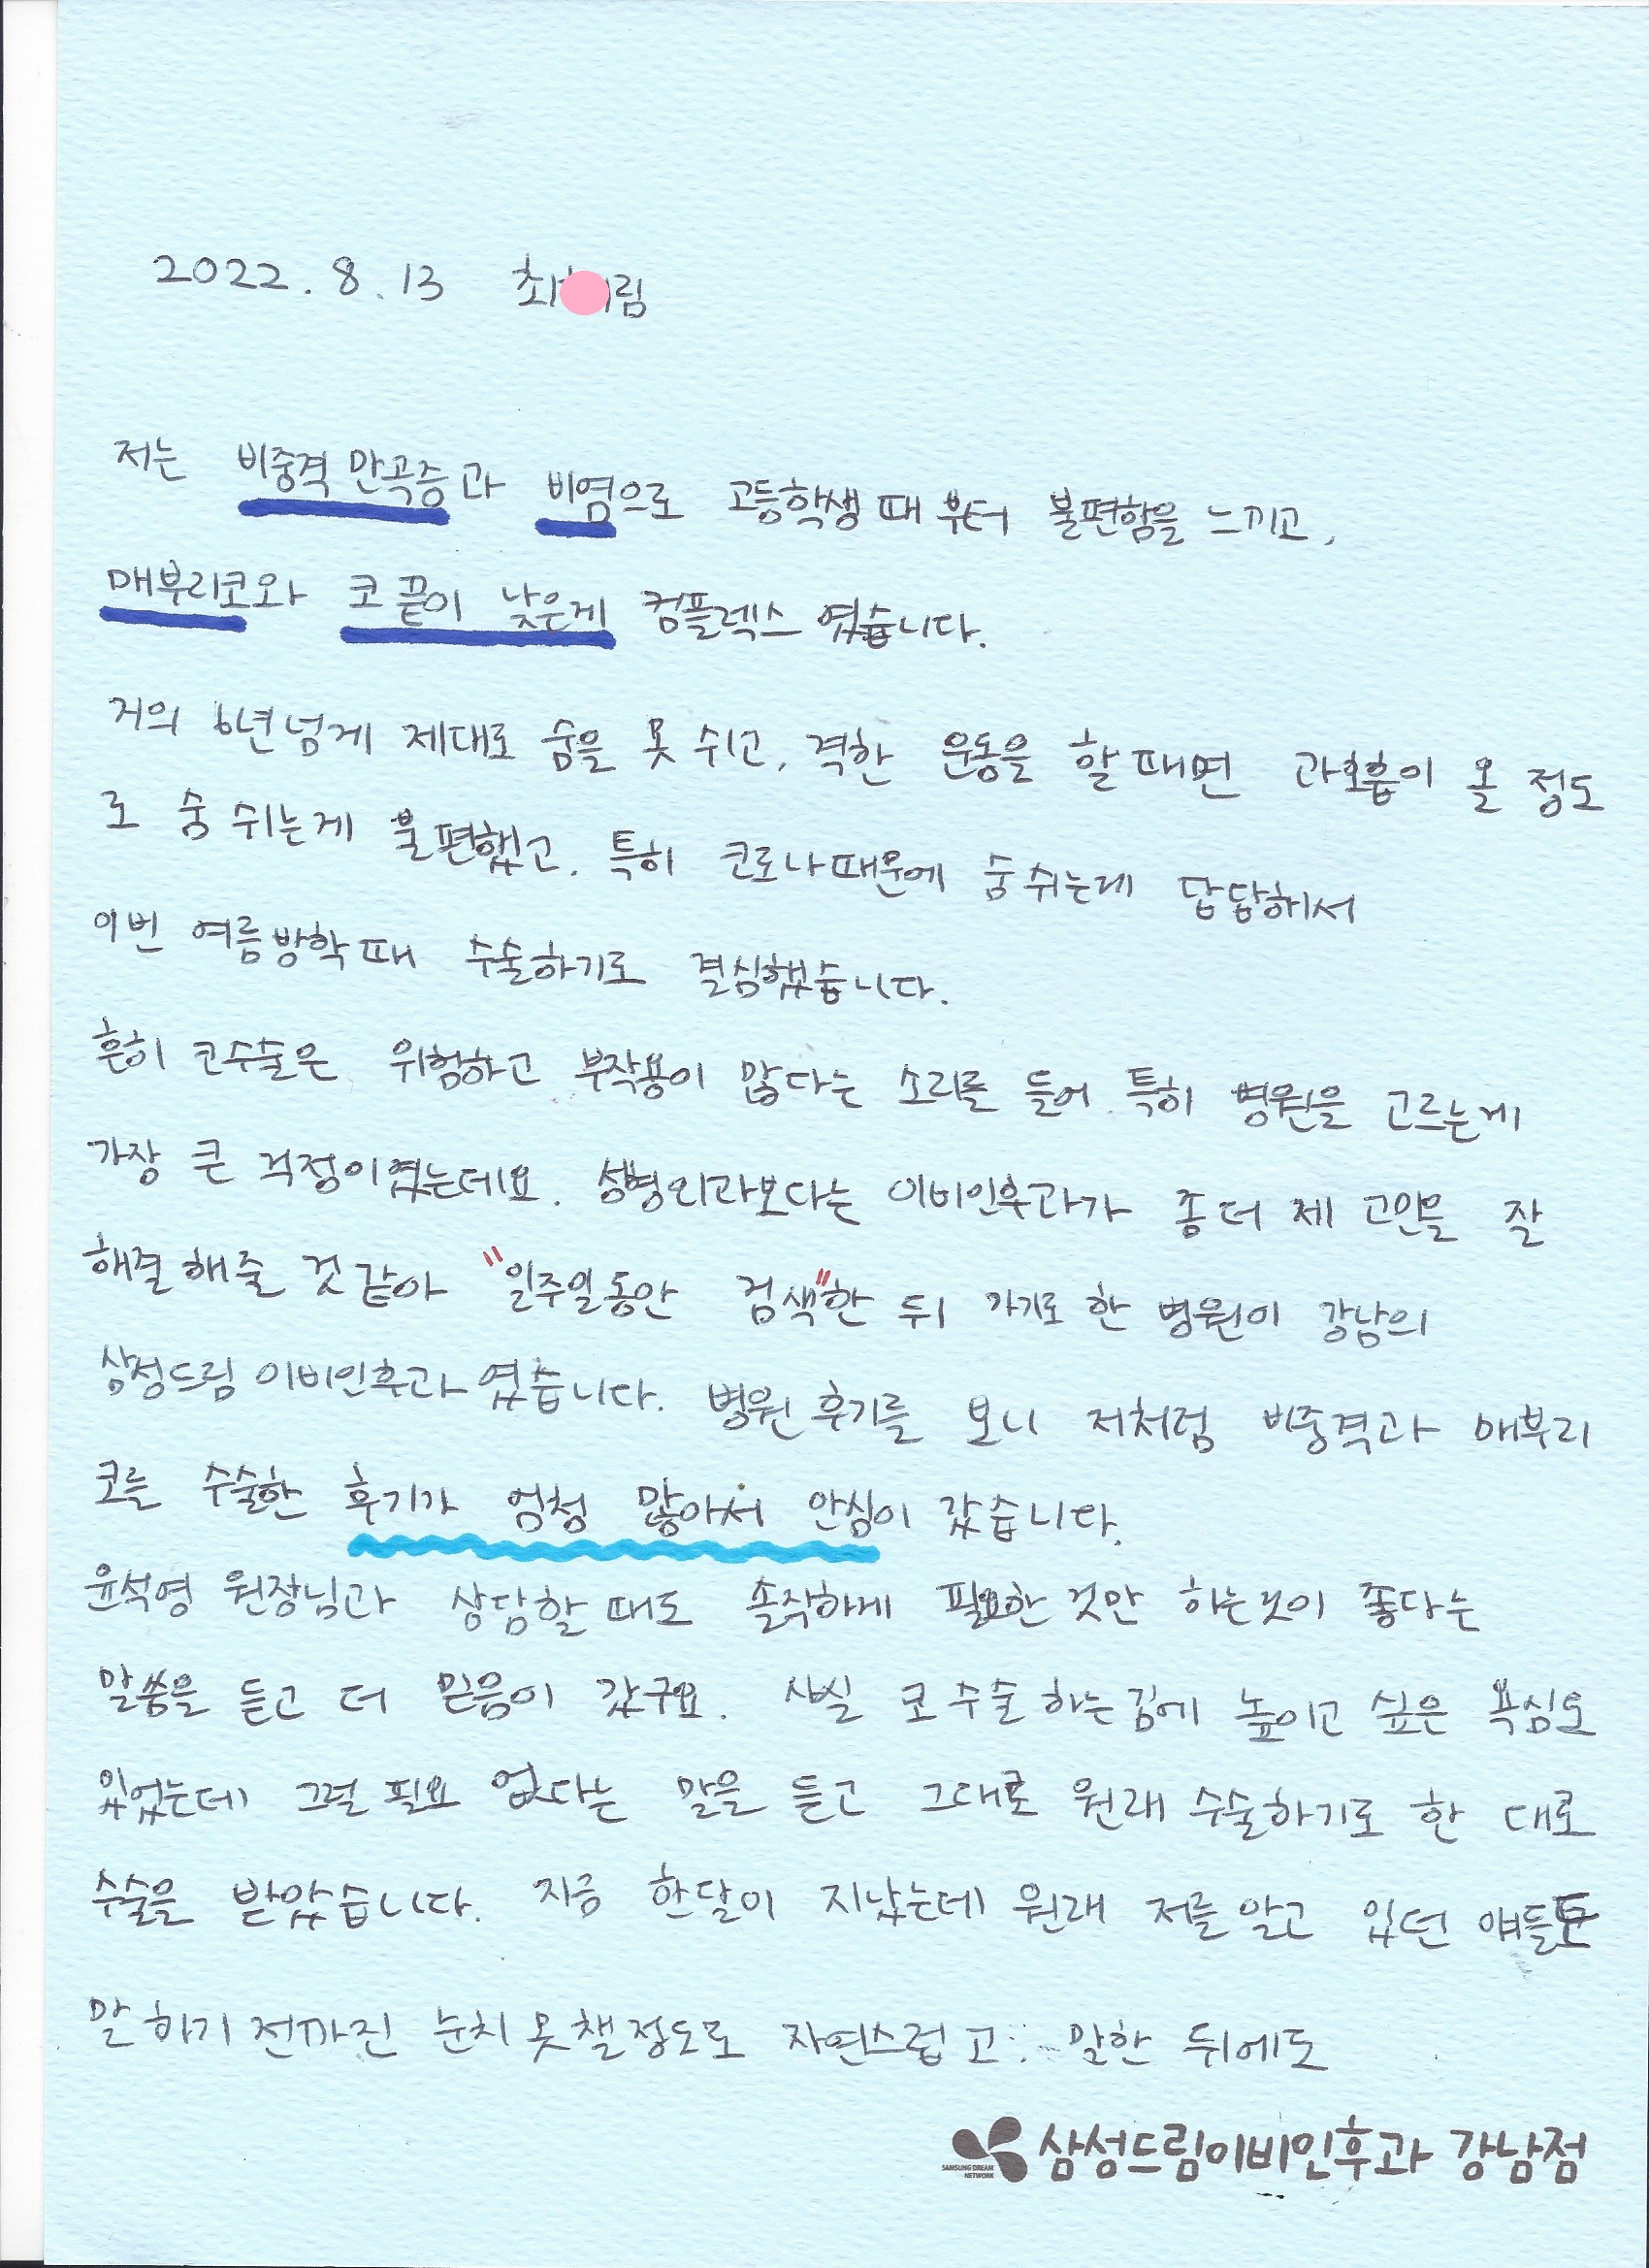 2022. 8. 13 최 림
저는 비중격 만곡증과 비염으로 고등학생 때 부터 불편함을 느끼고,
매부리코와 코 끝이 낮은게 컴플렉스 였습니다.
거의 6년넘게 제대로 숨을 못 쉬고, 격한 운동을 할 때면 과호흡이 올 정도
로 숨 쉬는게 불편했고. 특히 코로나때문에 숨쉬는데 답답해서
이번 여름방학 때 수술하기로 결심했습니다.
흔히 코수술은 위험하고 부작용이 많다는 소리를 들어 특히 병원을 고르는게
가장 큰 걱정이였는데요. 성형외과보다는 이비인후과가 좀 더 제 고민을 잘
해결해줄 것 같아 "일주일동안 검색"한 뒤 가기로 한 병원이 강남의
삼성드림 이비인후과 였습니다. 병원 후기를 보니 저처럼 비중격과 매부리
코를 수술한 후기가 엄청 많아서 안심이 갔습니다.
윤석영 원장님과 상담할 때도 솔직하게 필요한 것만 하는것이 좋다는
말씀을 듣고 더 믿음이 갔구요. 사실 코 수술 하는김에 높이고 싶은 욕심도
있었는데 그럴 필요 없다는 말을 듣고 그대로 원래 수술하기로 한 대로
수술을 받았습니다. 지금 한달이 지났는데 원래 저를 알고 있던 얘들도
말 하기 전까진 눈치 못챌정도로 자연스럽고. 말한 뒤에도
SAMSUNG DREAM NETWORK 삼성드림이비인후과 강남점